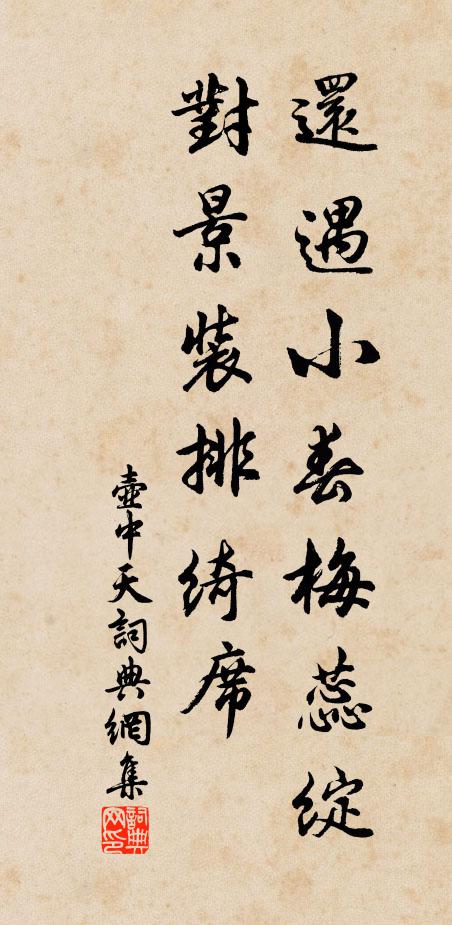 還遇小春梅蕊綻
對景裝排綺席
壺中天詞典網集
詞典
网印